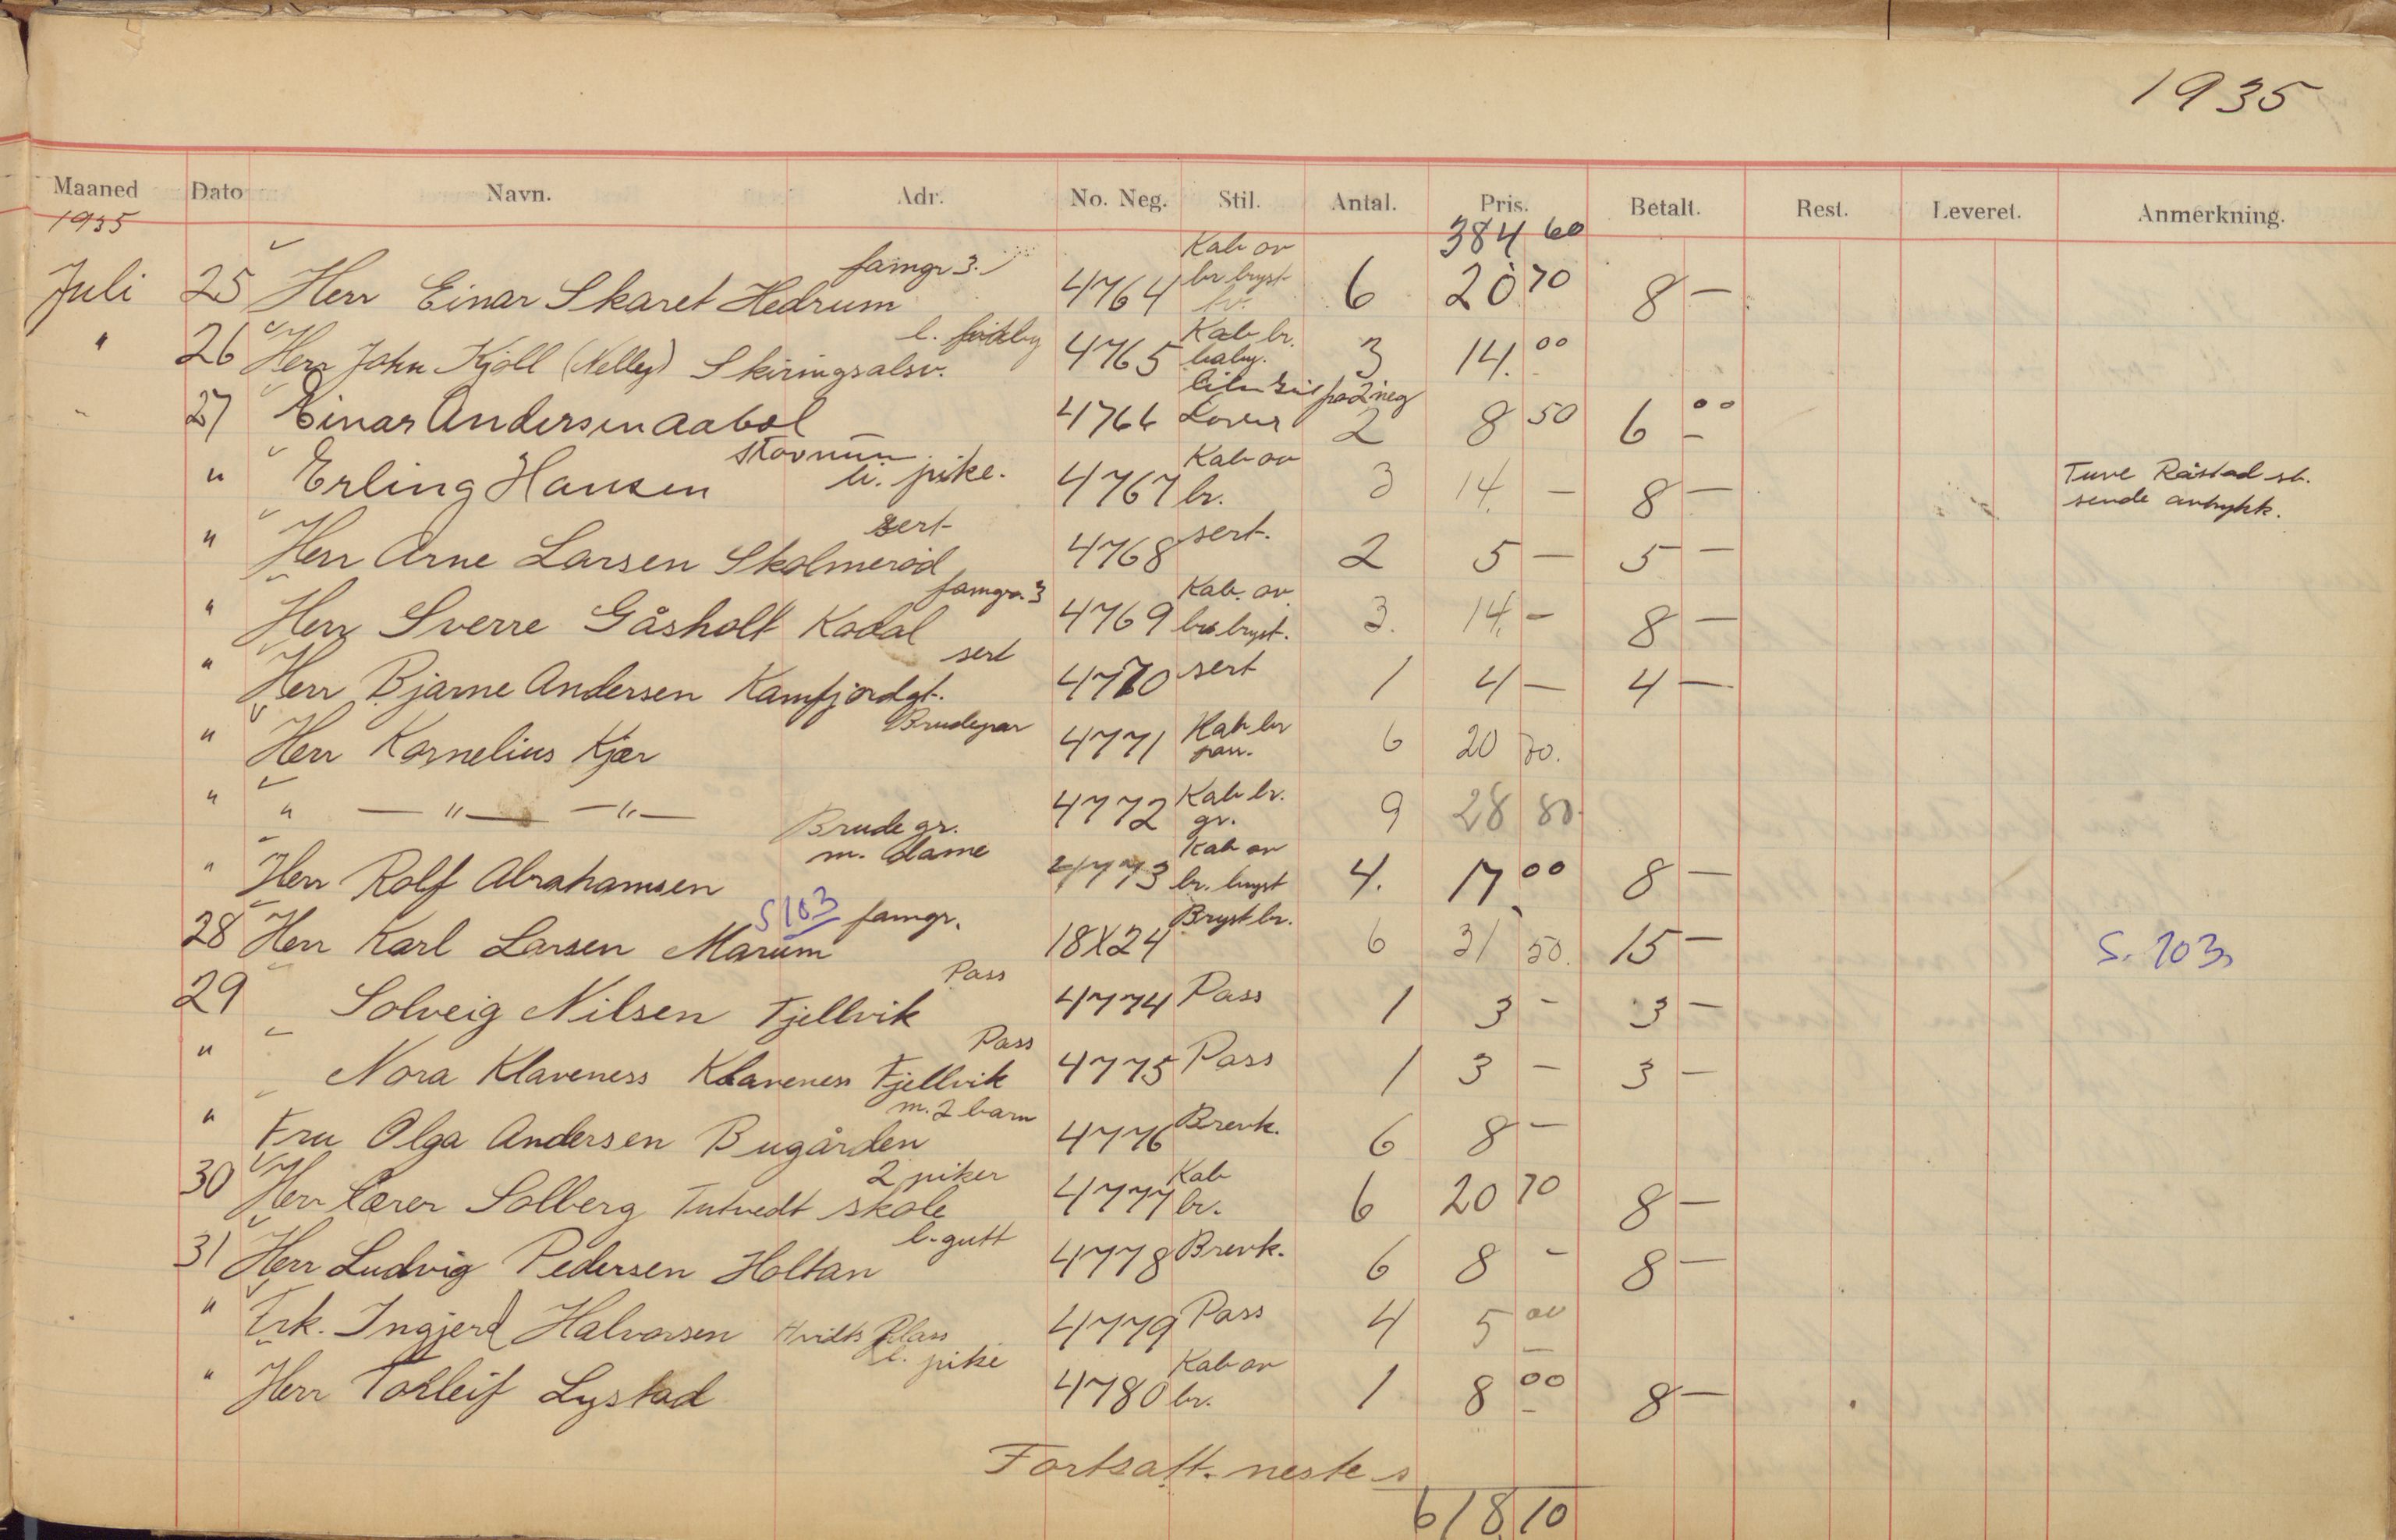 1935
Maaned Dato Navn. Adr. No. Neg. Stil. Antal. Pris. Betalt. Rest. Leveret. Anmerkning.
1935 384 60
Juli 25 Herr Einar Skaret Hedrum famgr 3. 4764 Kab av br bryst 6 20 70 8 —
" 26 Herr John Kjöll (Nelley) Skiringsalsv. 4765 Kab br. baby. 3 14. 00
27 Einar Andersen Aabol 4766 på 2 neg 2 8 50 6 00
" Erling Hansen Stavnum li. pike. 4767 Kab av br. 3 14. — 8 — Tuve Råstad st.
sende avtrykk.
" Herr Arne Larsen Skolmeröd sert 4768 sert. 2 5 — 5 —
" Herr Sverre Gåsholt Kodal famgr. 3 4769 Kab. av br bryst. 3. 14. — 8 —
" Herr Bjarne Andersen Kamfjordgt. sert 4770 sert 1 4 — 4 —
" Herr Kornelius Kjær Brudepar 4771 Kab br par. 6 20 70.
" " — " — — " — Brude gr. 4772 Kab br. gr. 9 28 80.
" Herr Rolf Abrahamsen m. dame 4773 Kab av br. bryst 4. 17 00 8 —
28 Herr Karl Larsen Marum S 103 famgr. 18X24 Bryst br. 6 31 50. 15 — S. 103
29 Solveig Nilsen Fjellvik Pass 4774 Pass 1 3 - 3 —
" Nora Klaveness Klavenes Fjellvik Pass 4775 Pass 1 3 — 3 —
" Fru Olga Andersen Bugården m. 2 barn 4776 Brevk. 6 8 —
30 Herr Lærer Solberg Tutvedt skole 2 piker 4777 Kab br. 6 20 70 8 —
31 Herr Ludvig Pedersen Holtan l. gutt 4778 Brevk. 6 8 - 8 —
" Frk. Ingjerd Halvorsen Hvidts Plass 4779 Pass 4 5 00
" Herr Torleif Lystad l. pike 4780 Kab av br. 1 8 00 8 —
Fortsatt. neste s
618,10